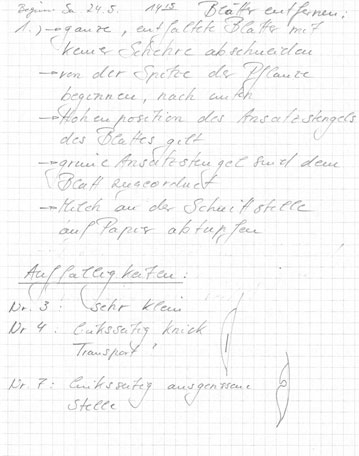 Beginn Sa 24.5. 14:15 Blätter entfernen:
1.) → ganze, entfaltete Blätter mit
keiner Schere abschneiden
→ von der Spitze der Pflanze
beginnen, nach unten
→ Höhenposition des Ansatzstengels
des Blattes gilt
→ grüne Ansatzstengel sind dem
Blatt zugeordnet
→ Milch an der Schnittstelle
auf Papier abtupfen
Auffälligkeiten:
Nr. 3: sehr klein
Nr 4: linksseitig Knick
Transport!
Nr 7: linksseitig ausgerissene
Stelle